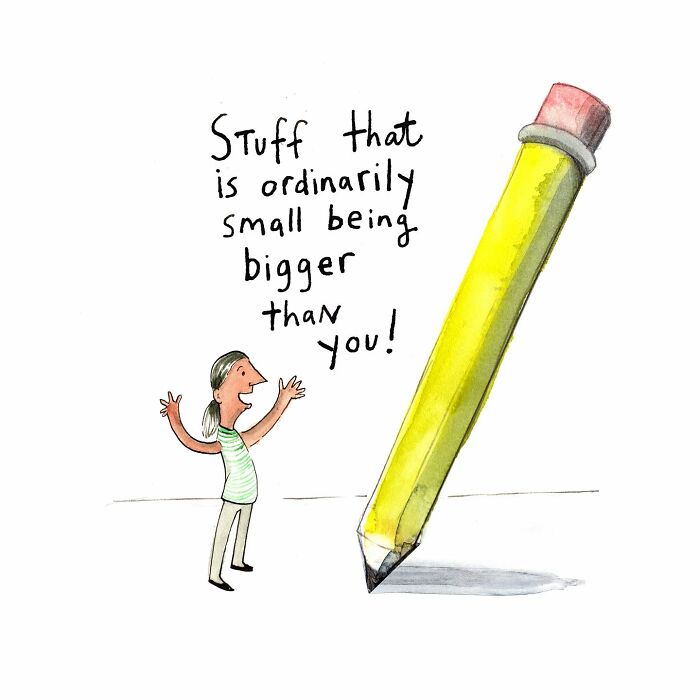 Stuff that
is ordinarily
small being
bigger
than
you!